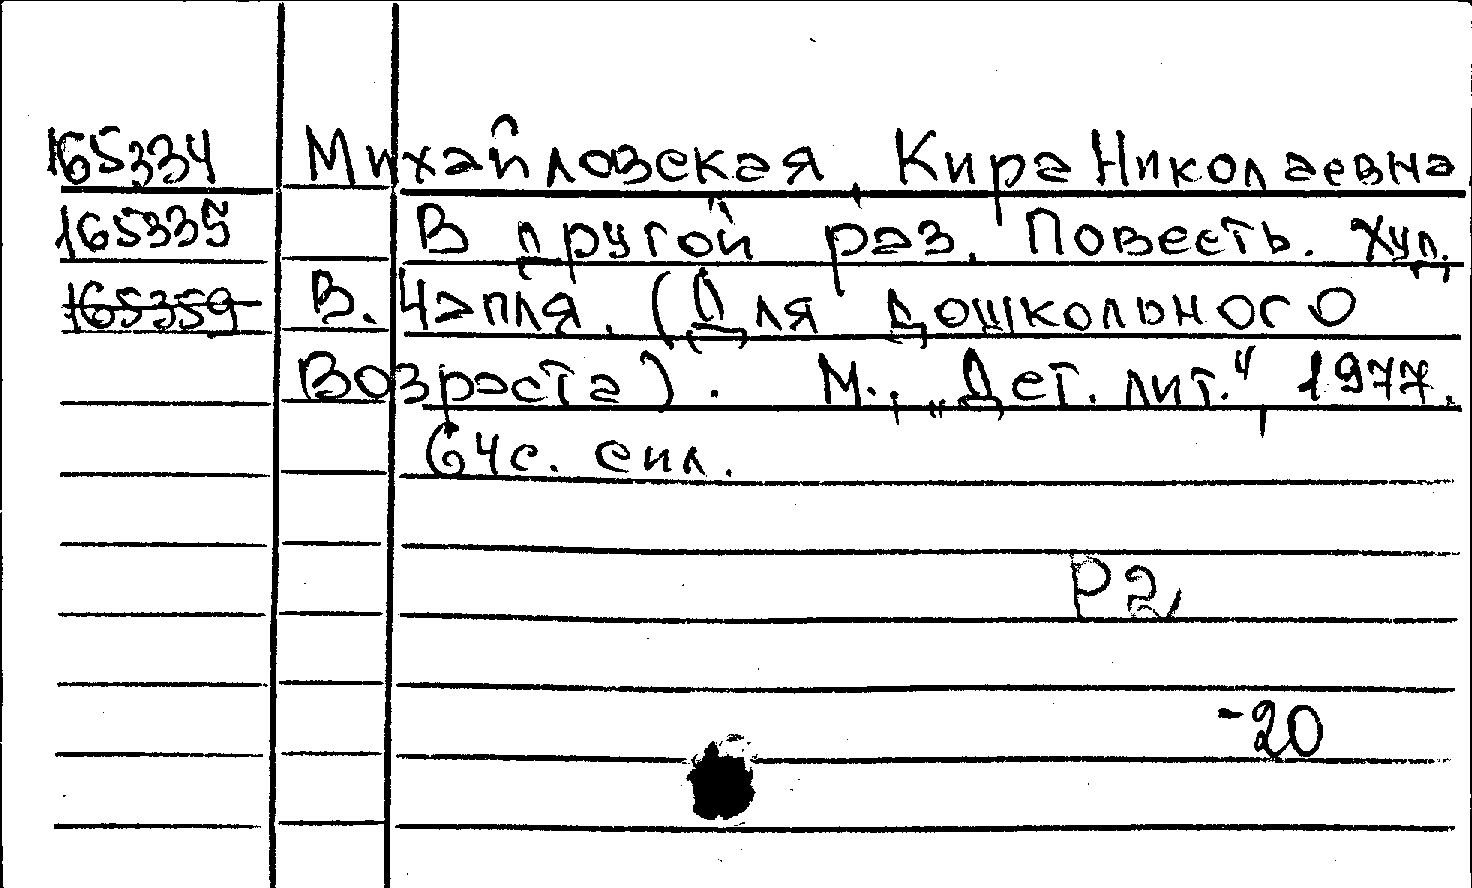 165334 Михайловская, Кира Николаевна
165335 В другой раз. Повесть. Худ.
165359 В. Чапля. (Для дошкольного
возраста). М., „Дет. лит.“, 1977.
64с. сил.
Р2
-20